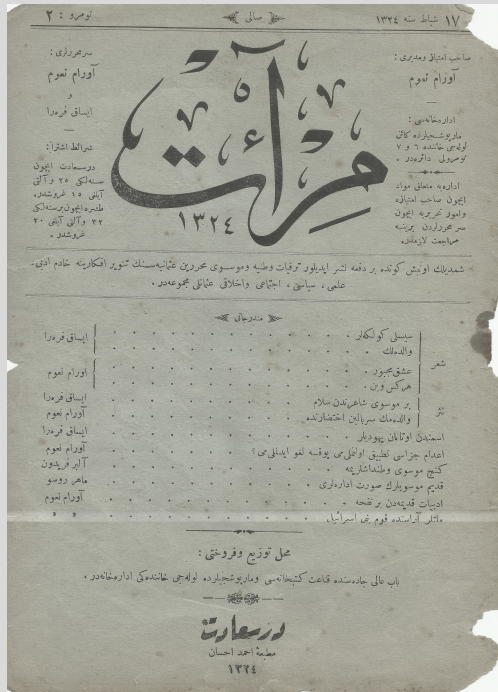 ١٧ شباط سنه ١٣٢٤
صالی
نومرو : ٢
صاحب امتیازی ومدیری :
آورام نعوم
اداره‌خانه‌سی :
ماریوشجیلرده كائن
لوله‌جی خاننده ٦ و ٧
نومرولی دائره‌در .
اداره‌یه متعلق مواد
ایچون صاحب امتیازه
وامور تحریریه ایچون
سر محررلردن برینه
مراجعت لازمدر .
سر محررلری :
آورام نعوم
و
ایساق فره‌را
شرائط اشترا :
درسعادت ایچون
سنه‌لكی ٢٥ و آلتی
آیلغی ١٥ غروشدر .
طشره ایچون برسنه‌لكی
٣٢ و آلتی آیلغی ٢٠
غروشدر .
مرآت
١٣٢٤
شمدیلك اون بش كونده بر دفعه نشر ایدیلور ترقیات وطنیه وموسوی محررین عثمانیه‌سنك تنویر افكارینه خادم ادبی،
علمی ، سیاسی ، اجتماعی واخلاقی عثمانلی مجموعه‌در .
مندرجاتی
شعر
سیسلی كولكه‌لر
والده‌لك
ایساق فره‌را
عشق مجبور
هركس وبن
اورام نعوم
نثر
بر موسوی شاعرندن سلام
ایساق فره‌را
والده‌مك سریالین احتضارنده
آورام نعوم
اسمندن اوتانان یهودیلر
ایساق فره‌را
اعدام جزاسی تطبیق اولنملی می یوقسه لغو ایدلملی می ؟
آورام نعوم
كنج موسوی وطنداشلریمه
آلبر فریدون
قدیم موسویلرك صورت اداره‌لری
ماهر روسو
ادبیات قدیمه‌دن بر نفحه
آورام نعوم
ملتلر آراسنده قوم بنی اسرائیل
» »
محل توزیع وفروختی :
باب عالی جاده‌سنده قناعت كتبخانه‌سی وماریوشجیلرده لوله‌جی خاننده‌كی اداره‌خانه‌در .
درسعادت
مطبعهٔ احمد احسان
١٣٢٤